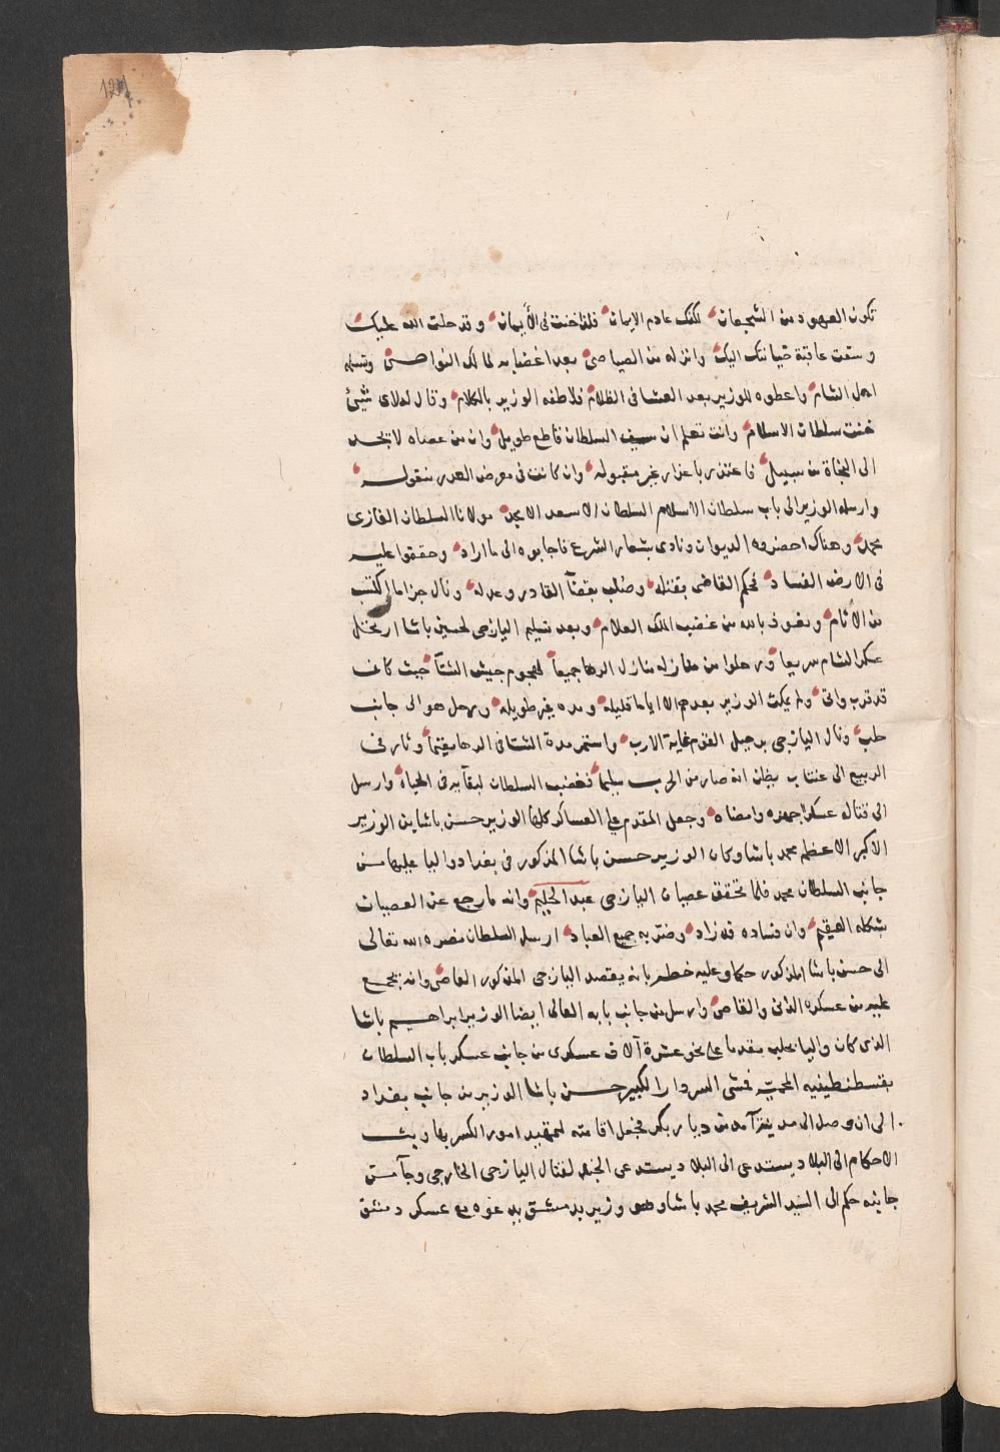 تكون العهود من الشجعان لكنك عادم الايمان فلذا خنت فى الأيمان وقد حلت الله عليك
وسقت عاقبة خيانتك اليك وانزله من الصياصى بعد اغضابه لمالك النواصى وتسلمه
اهل الشام واعطوه للوزير بعد العشا فى الظلام فلاطفه الوزير بالكلام وقال له لاى شيئ
خنت سلطان الاسلام وانت تعلم ان سيف السلطان قاطع طويل وان من عصاه لا يجد
الى النجاة من سبيل فاعتذر باعذار غير مقبوله وان كانت فى معرض العذر منقوله
وارسله الوزير الى باب سلطان الاسلام السلطان الاسعد الامجد مولانا السلطان الغازى
محمد وهناك احضروه الديوان ونادى بشعار الشرع فاجابوه الى ما اراد وحققوا عليه
فى الارض الفساد فحكم القاضى بقتله وصلب بقضآ القادر وعدله ونال جزا ما اكتسب
من الأثام ونعوذ بالله من غضب الملك العلام وبعد تسليم اليازجى لحسين باشا ارتحل
عسكر الشام سريعا ورحلوا من منازله منازل الرها جميعا لهجوم جيش الشتآ حيث كان
قد قرب واتى ولم يمكث الوزير بعدهم الا اياما قليله ومده غير طويله ورحل هو الى جانب
حلب ونال اليازجى برحيل القوم غاية الارب واستمر مدة الشتا فى الرها مقيما وثار فى
الربيع الى عنتاب يظن انه صار من الحرب سليما فغضب السلطان لبقآيه فى الحياة وارسل
الى قتاله عسكرا جهزه وامضاه وجعل المقدم على العساكر كلها الوزير حسن باشا بن الوزير
الاكبر الاعظم محمد باشا وكان الوزير حسن باشا المذكور فى بغداد واليا عليها من
جانب السلطان محمد فلما تحقق عصيان اليازجى عبد الحليم وانه ما رجع عن العصيان
بشكله العقيم وان فساده قد زاد وضر به جميع العباد ارسل السلطان نصره الله تعالى
الى حسن باشا المذكور حكما وعليه خطه بانه يقصد اليازجى المذكور العاصى وانه يجمع
عليه من عسكره الدانى والقاصى وارسل من جانب بابه العالى ايضا الوزير ابراهيم باشا
الذى كان واليا بحلب مقدما على نحو عشرة آلاف عسكرى من جانب عسكر باب السلطان
بقسطنطينيه المحميّه فمشى السردار الكبير حسن باشا الوزير من جانب بغداد
الى ان وصل الى مدينة آمد من ديار بكر فجعل اقامته لتمهيد امور العسكر بها وبث
الاحكام الى البلاد يستدعى الى البلاد يستدعى الجند لقتال اليازجى الخارجى وجآ من
جانبه حكم الى السيد الشريف محمد باشا وهو وزير بدمشق يدعوه مع عسكر دمشق